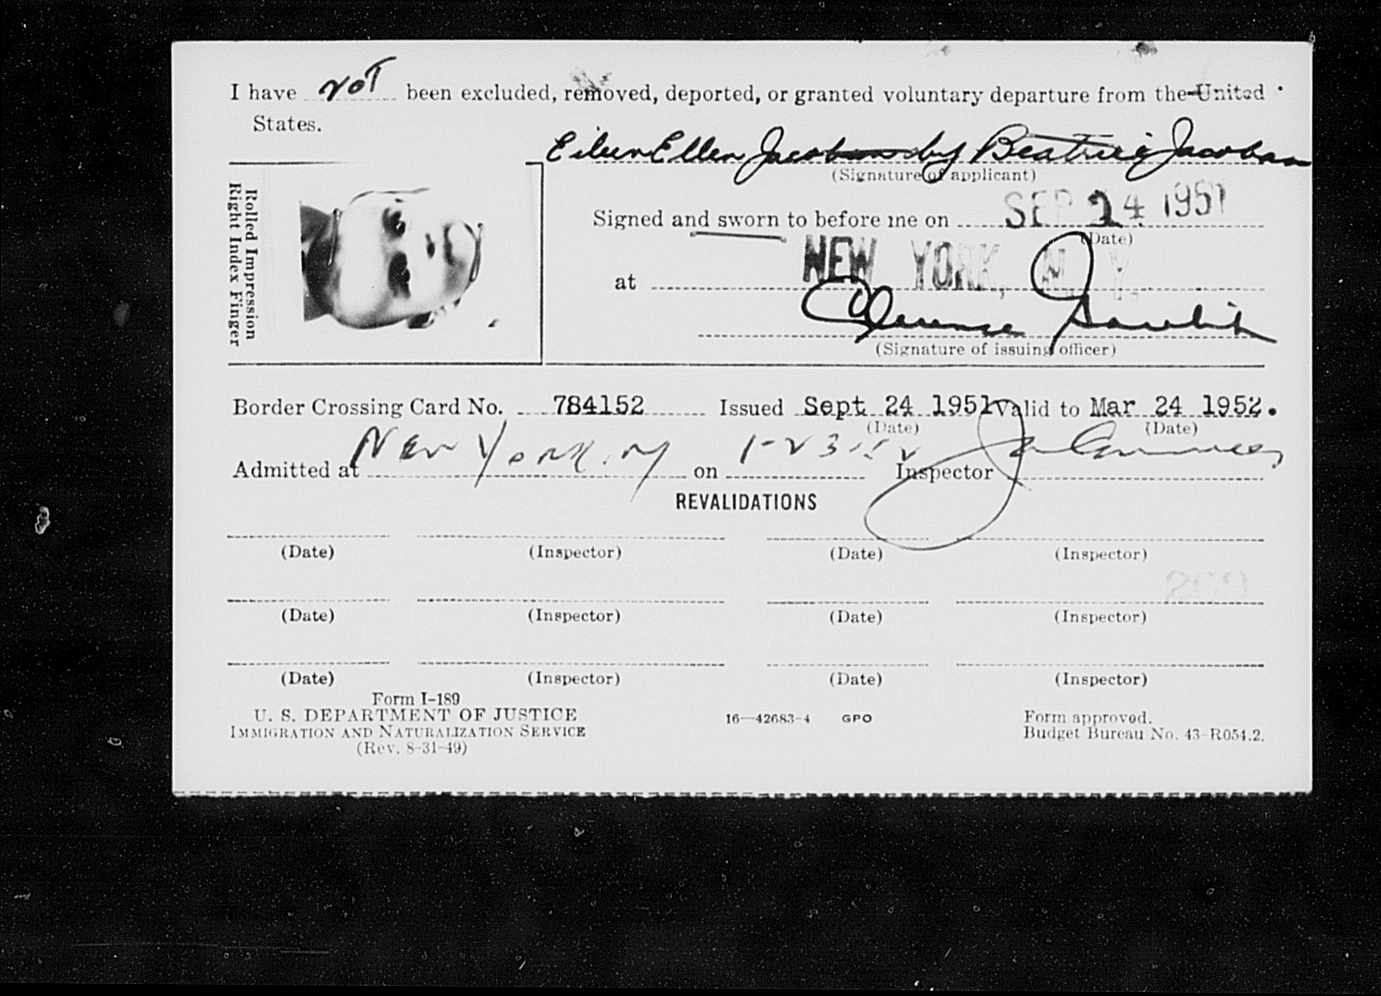 I have not been excluded, removed, deported, or granted voluntary departure from the United
States.
Eileen Ellen Jacobson by Beatrice Jacobson
(Signature of applicant)
Rolled Impression
Right Index Finger
Signed and sworn to before me on SEP 24 1951
(Date)
at NEW YORK, N. Y.
Clarence
(Signature of issuing officer)
Border Crossing Card No. 784152 Issued Sept 24 1951 Valid to Mar 24 1952.
(Date) (Date)
Admitted at New York, NY on 1-23-52 Inspector
REVALIDATIONS
(Date) (Inspector) (Date) (Inspector)
(Date) (Inspector) (Date) (Inspector)
(Date) (Inspector) (Date) (Inspector)
Form I-189
U. S. DEPARTMENT OF JUSTICE
IMMIGRATION AND NATURALIZATION SERVICE
(Rev. 8-31-49)
16—42683-4 GPO
Form approved.
Budget Bureau No. 43-R054.2.